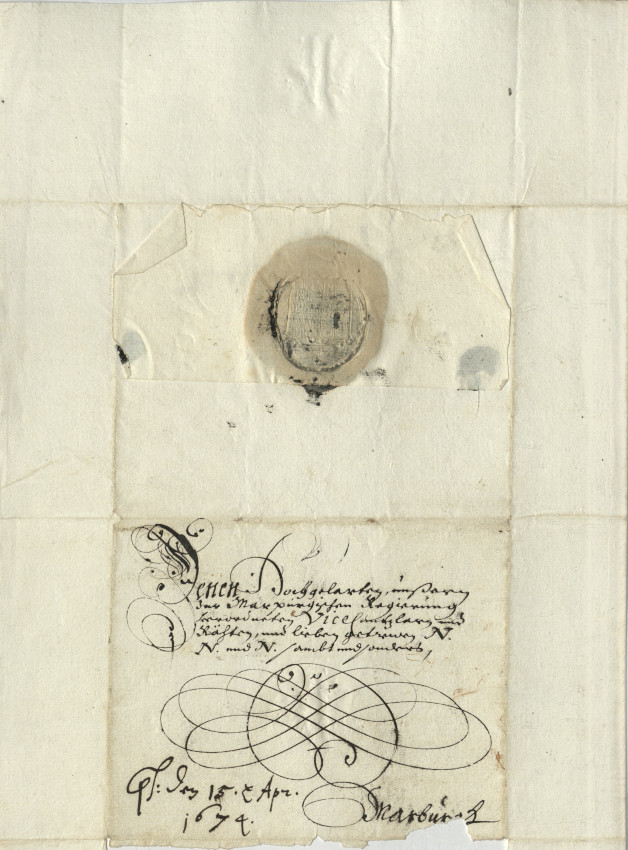 Denen Hochgelarten, unßern
zur Marpurgischen Regierung
verordneten Vice Cantzlern und
Rähten, und lieben getrewen N.
N. und N. sambt und sonders,
den 15. Apr.
1674.
Marburgk